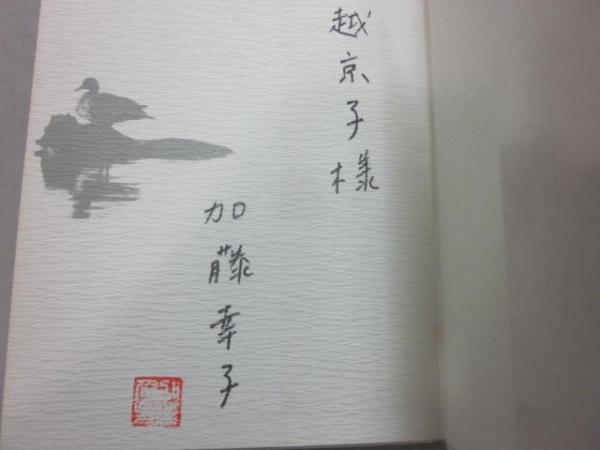 越京子様
加藤幸子